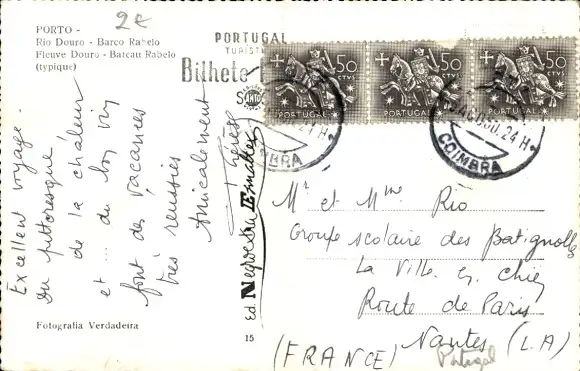 PORTO -
Rio Douro - Barco Rabelo
Fleuve Douro - Bateau Rabelo
(typique)
2€
PORTUGAL
Bilhete
50
CTVS
PORTUGAL
50
CTVS
PORTUGAL
50
CTVS
PORTUGAL
COIMBRA
24 H
COIMBRA
Excellent voyage.
Du pittoresque
de la chaleur
et ... du bon vin
font des vacances
très réussies
Amicalement
Thérèse
Ed.
Mr et Mme Rio
Groupe scolaire des Batignolles
La Ville en
Route de Paris
Nantes (L.A)
(FRANCE)
Portugal
Fotografia Verdadeira
15